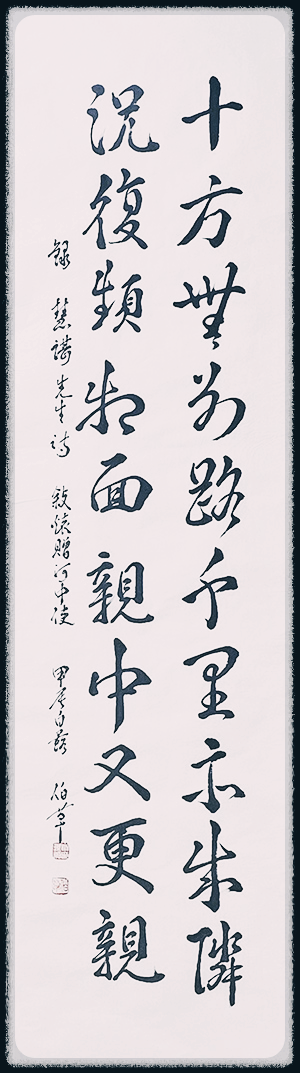 十方無別路千里亦成隣
況復頻相面親中又更親
錄 慧諶先生詩 敍懷贈河中使 甲辰白露